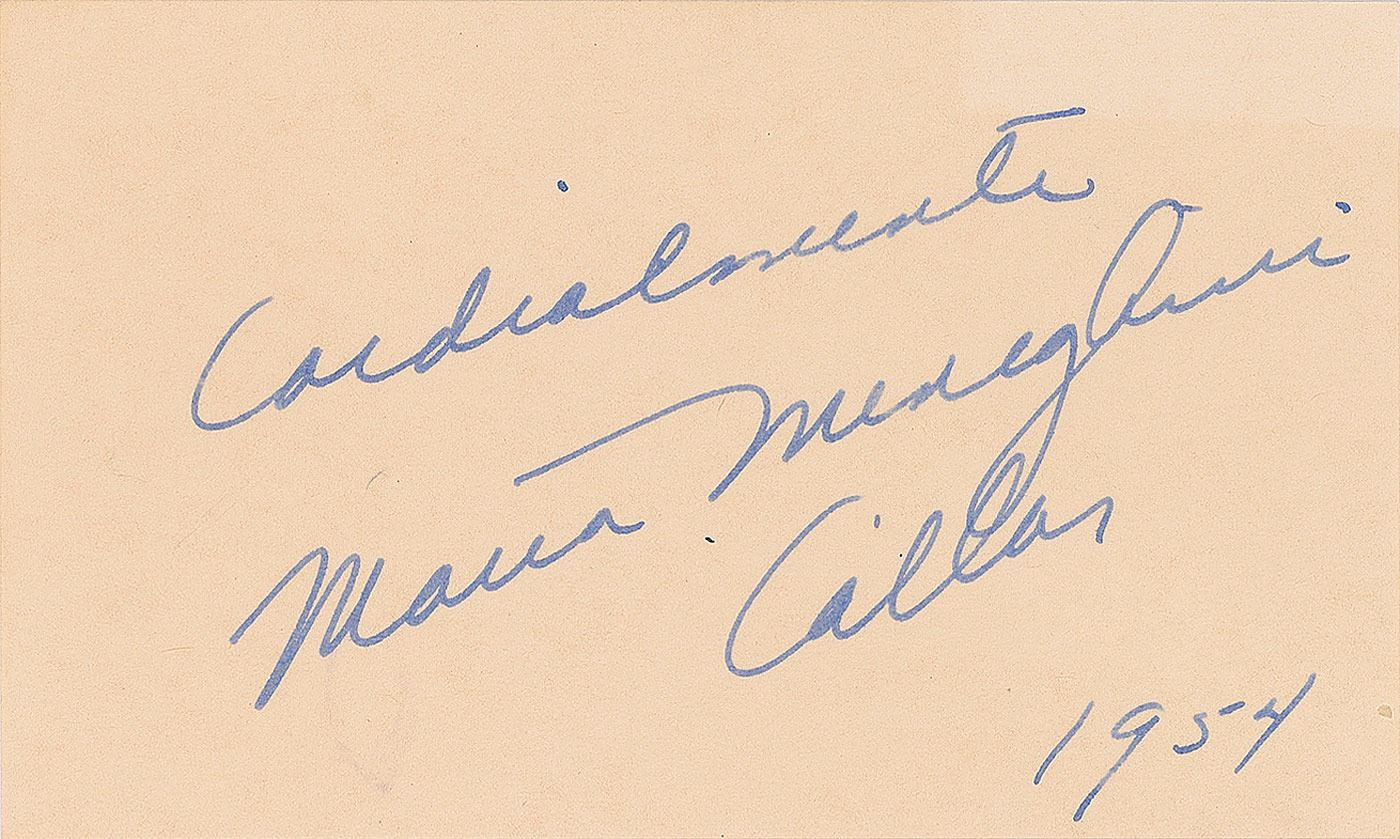 Cordialmente
Maria Meneghini
Callas
1954